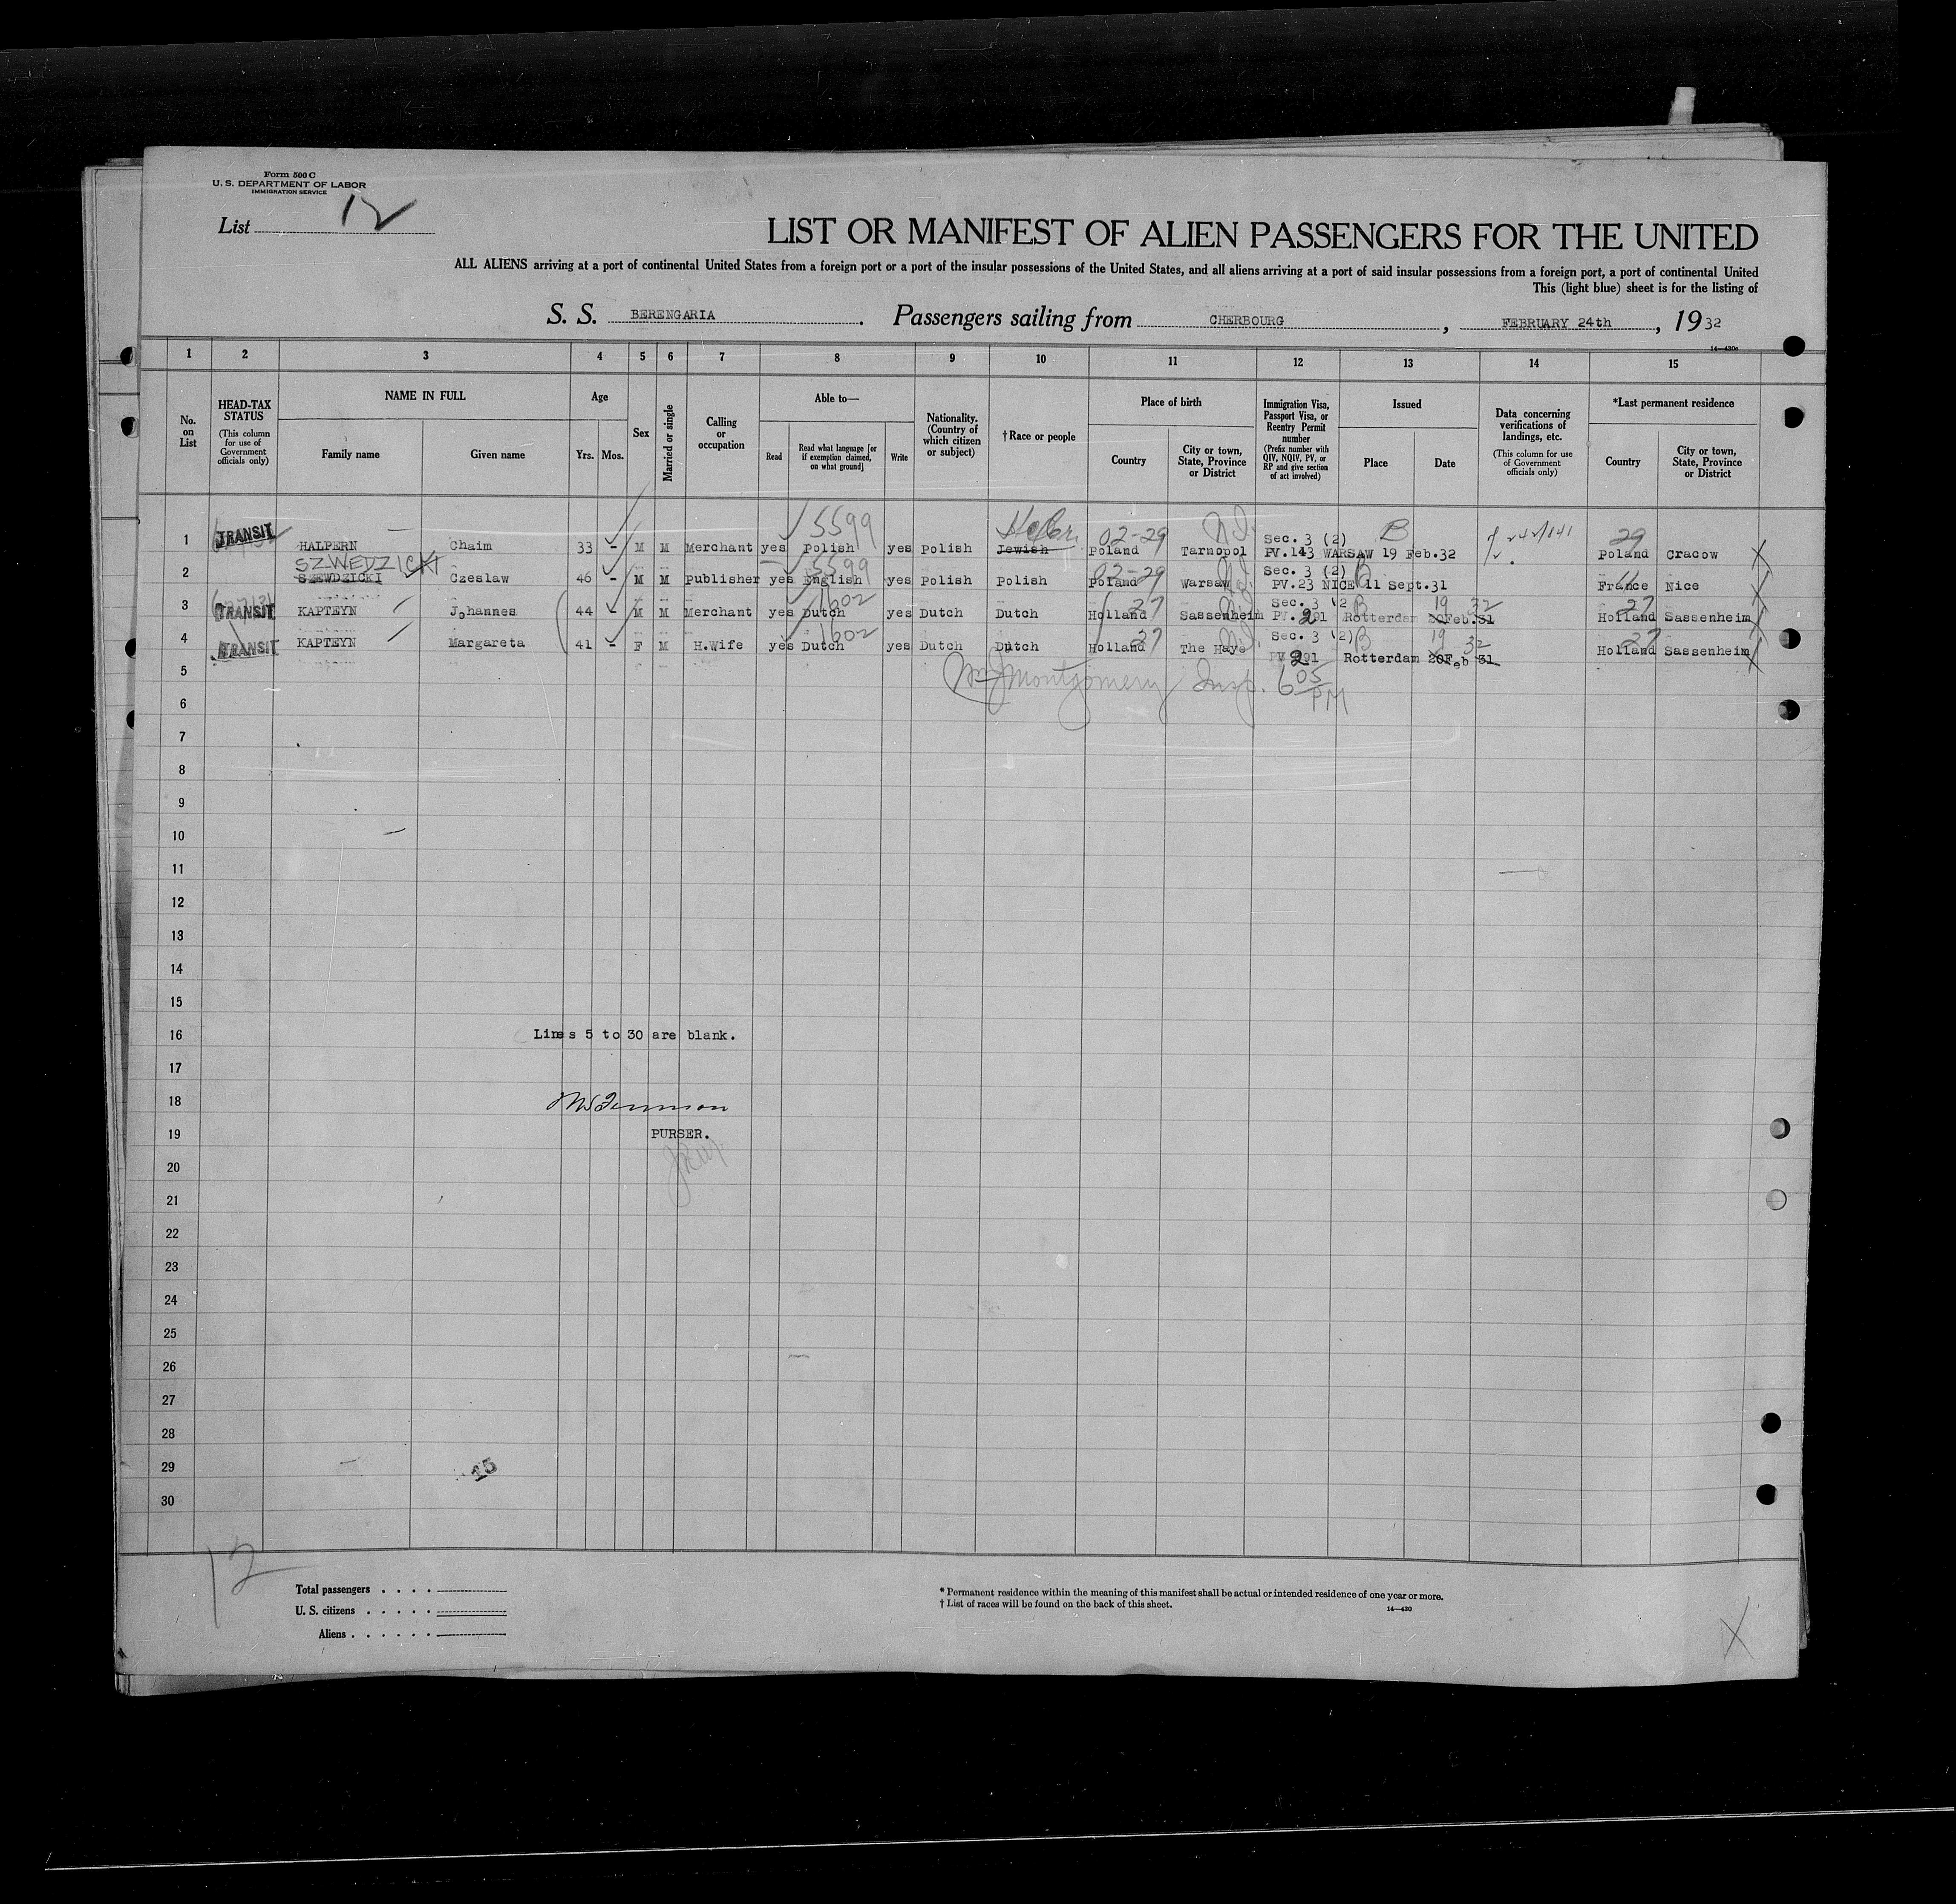 Form 500 C
U. S. DEPARTMENT OF LABOR
IMMIGRATION SERVICE
List 12
LIST OR MANIFEST OF ALIEN PASSENGERS FOR THE UNITED
ALL ALIENS arriving at a port of continental United States from a foreign port or a port of the insular possessions of the United States, and all aliens arriving at a port of said insular possessions from a foreign port, a port of continental United
This (light blue) sheet is for the listing of
S. S. BERENGARIA. Passengers sailing from CHERBOURG, FEBRUARY 24th, 1932
1 2 3 4 5 6 7 8 9 10 11 12 13 14 15
No. on List
HEAD-TAX STATUS
(This column for use of Government officials only)
NAME IN FULL
Family name
Given name
Age
Yrs. Mos.
Sex
Married or single
Calling or occupation
Able to—
Read
Read what language [or if exemption claimed, on what ground]
Write
Nationality. (Country of which citizen or subject)
†Race or people
Place of birth
Country
City or town, State, Province or District
Immigration Visa, Passport Visa, or Reentry Permit number
(Prefix number with QIV, NQIV, PV, or RP and give section of act involved)
Issued
Place
Date
Data concerning verifications of landings, etc.
(This column for use of Government officials only)
*Last permanent residence
Country
City or town, State, Province or District
5599 Hebr. 02-29 N.Y. Sec. 3 (2) B 29
1 TRANSIT HALPERN Chaim 33 - M M Merchant yes Polish yes Polish Jewish Poland Tarnopol PV.143 WARSAW 19 Feb.32 Poland Cracow
SZWEDZICKI 5599 02-29 Sec. 3 (2)
2 SZEWDZICKI Czeslaw 46 - M M Publisher yes English yes Polish Polish Poland Warsaw PV.23 NICE 11 Sept.31 France Nice
1602 27 Sec. 3 (2 B 19 32 27
3 TRANSIT KAPTEYN Johannes 44 M M Merchant yes Dutch yes Dutch Dutch Holland Sassenheim PV. 291 Rotterdam 20Feb.31 Holland Sassenheim
1602 27 Sec. 3 (2) B 19 32 27
4 TRANSIT KAPTEYN Margareta 41 - F M H.Wife yes Dutch yes Dutch Dutch Holland The Haye PV 291 Rotterdam 20Feb 31 Holland Sassenheim
5
Montgomery Insp. 6 05 PM
6
7
8
9
10
11
12
13
14
15
16 Lines 5 to 30 are blank.
17
18
19 PURSER.
20
21
22
23
24
25
26
27
28
29 15
30
12
Total passengers
U. S. citizens
Aliens
* Permanent residence within the meaning of this manifest shall be actual or intended residence of one year or more.
† List of races will be found on the back of this sheet.
14—430
X